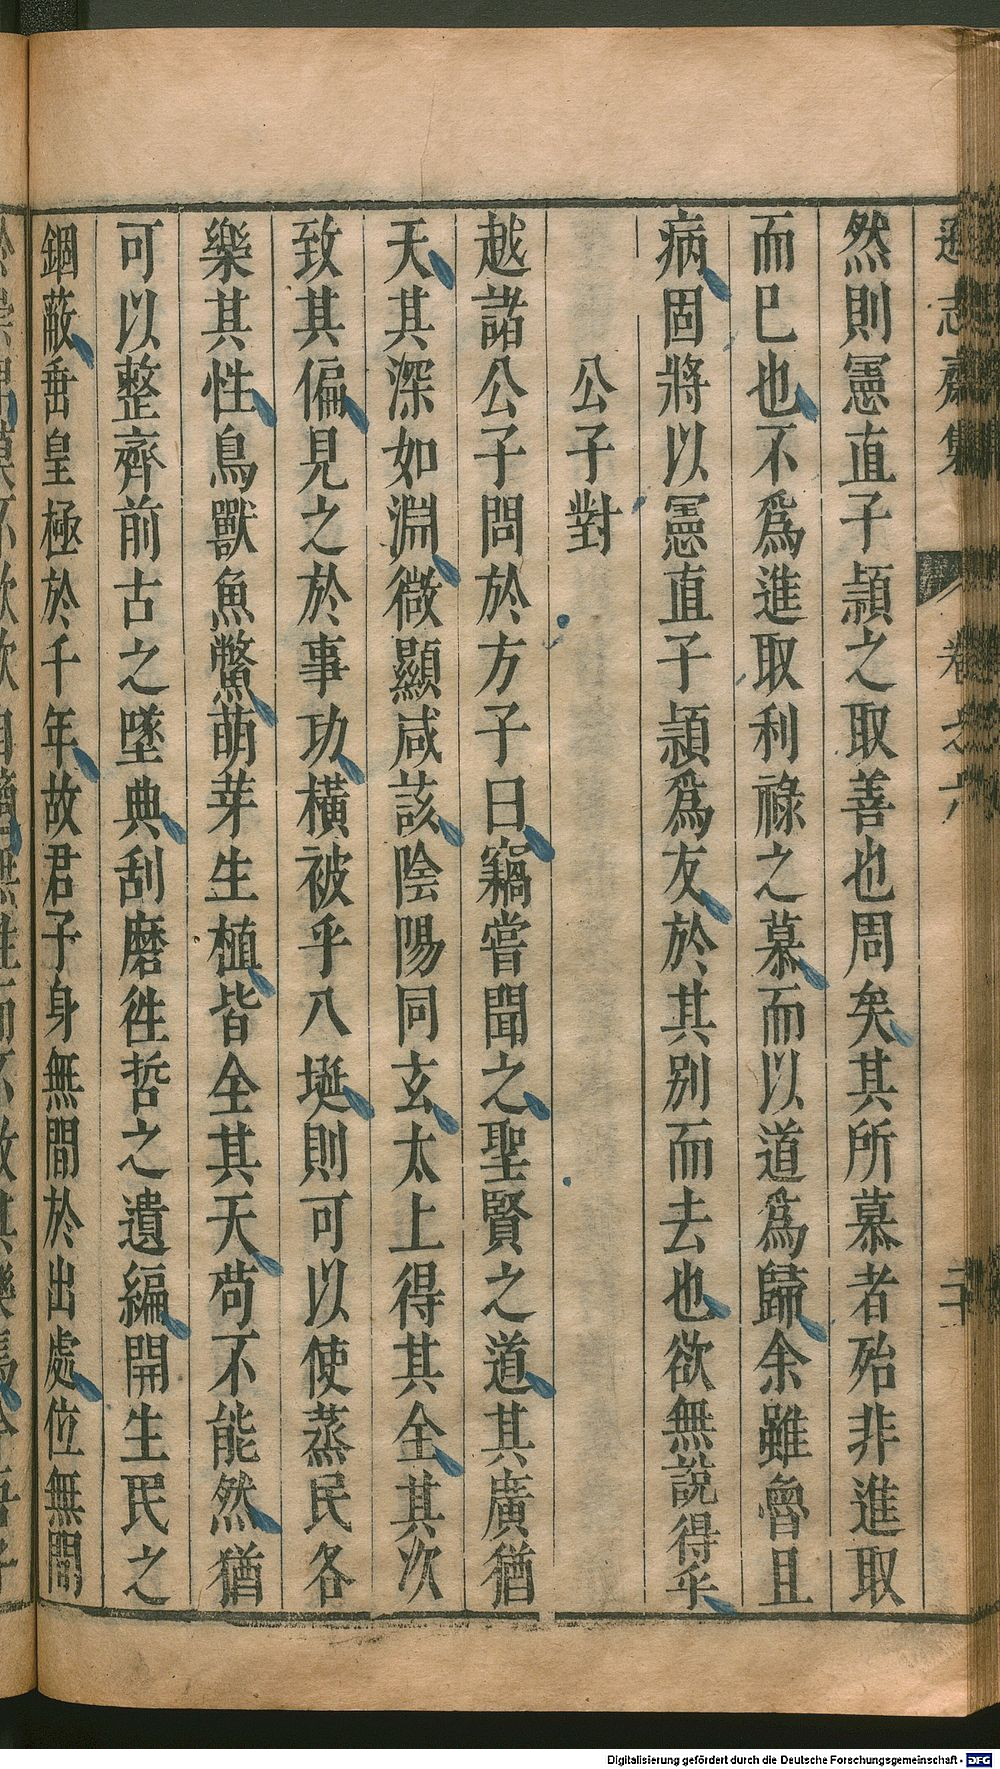 遜志齋集 卷之六 二十
然則憲直子頴之取善也周矣其所慕者殆非進取
而巳也不爲進取利祿之慕而以道爲歸余雖魯且
病固將以憲直子頴爲友於其別而去也欲無說得乎
公子對
越諸公子問於方子曰竊嘗聞之聖賢之道其廣猶
天其深如淵微顯咸該陰陽同玄太上得其全其次
致其偏見之於事功橫被乎八埏則可以使蒸民各
樂其性鳥獸魚鱉萌芽生植皆全其天苟不能然猶
可以整齊前古之墜典刮磨徃哲之遺編開生民之
錮蔽垂皇極於千年故君子身無間於出處位無間
Digitalisierung gefördert durch die Deutsche Forschungsgemeinschaft - DFG